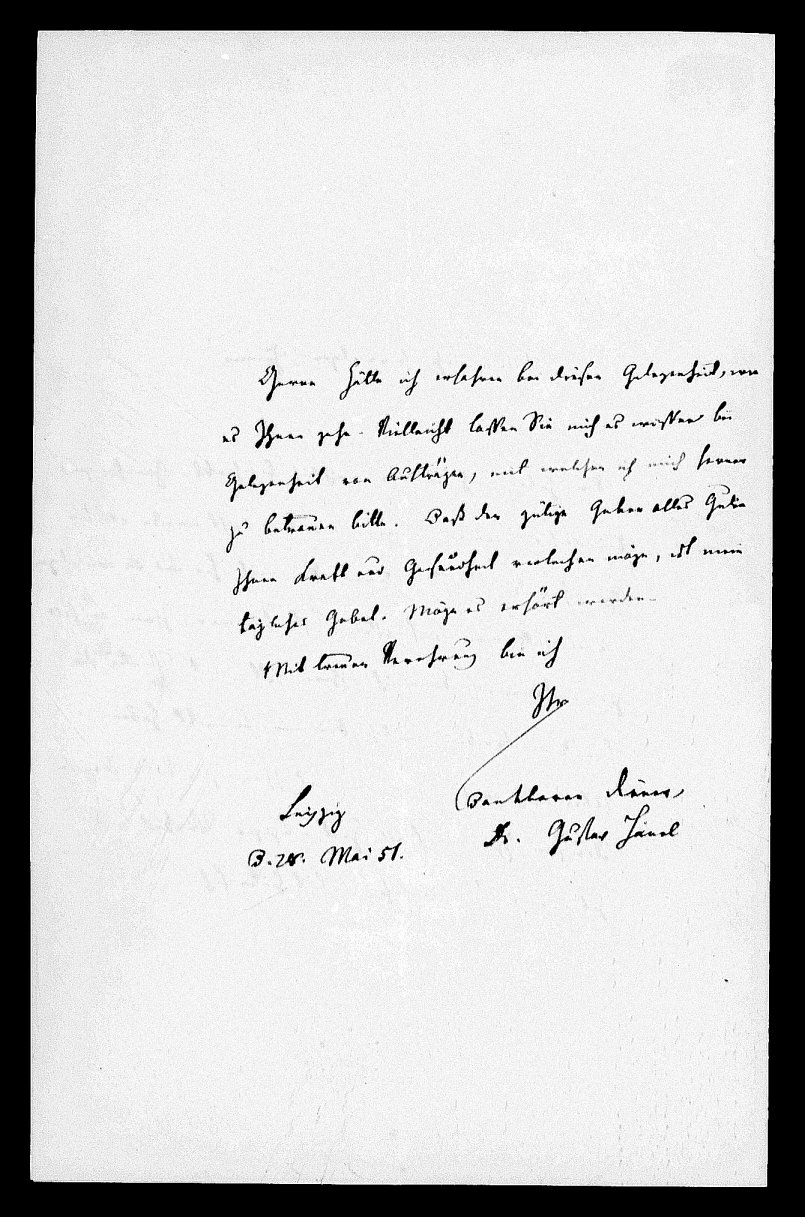 Gerne hätte ich erfahren bei dieser Gelegenheit, wie
es Ihnen gehe. Vielleicht lassen Sie mich es wissen bei
Gelegenheit von Aufträgen, mit welchen ich mich ferner
zu betrauen bitte. Daß der gütige Geber alles Guten
Ihnen Kraft und Gesundheit verleihen möge, ist mein
tägliches Gebet. Möge es erhört werden.
Mit treuer Verehrung bin ich
Ihr
dankbarer Diener
Dr. Gustav Hänel
Leipzig
D. 28. Mai 51.